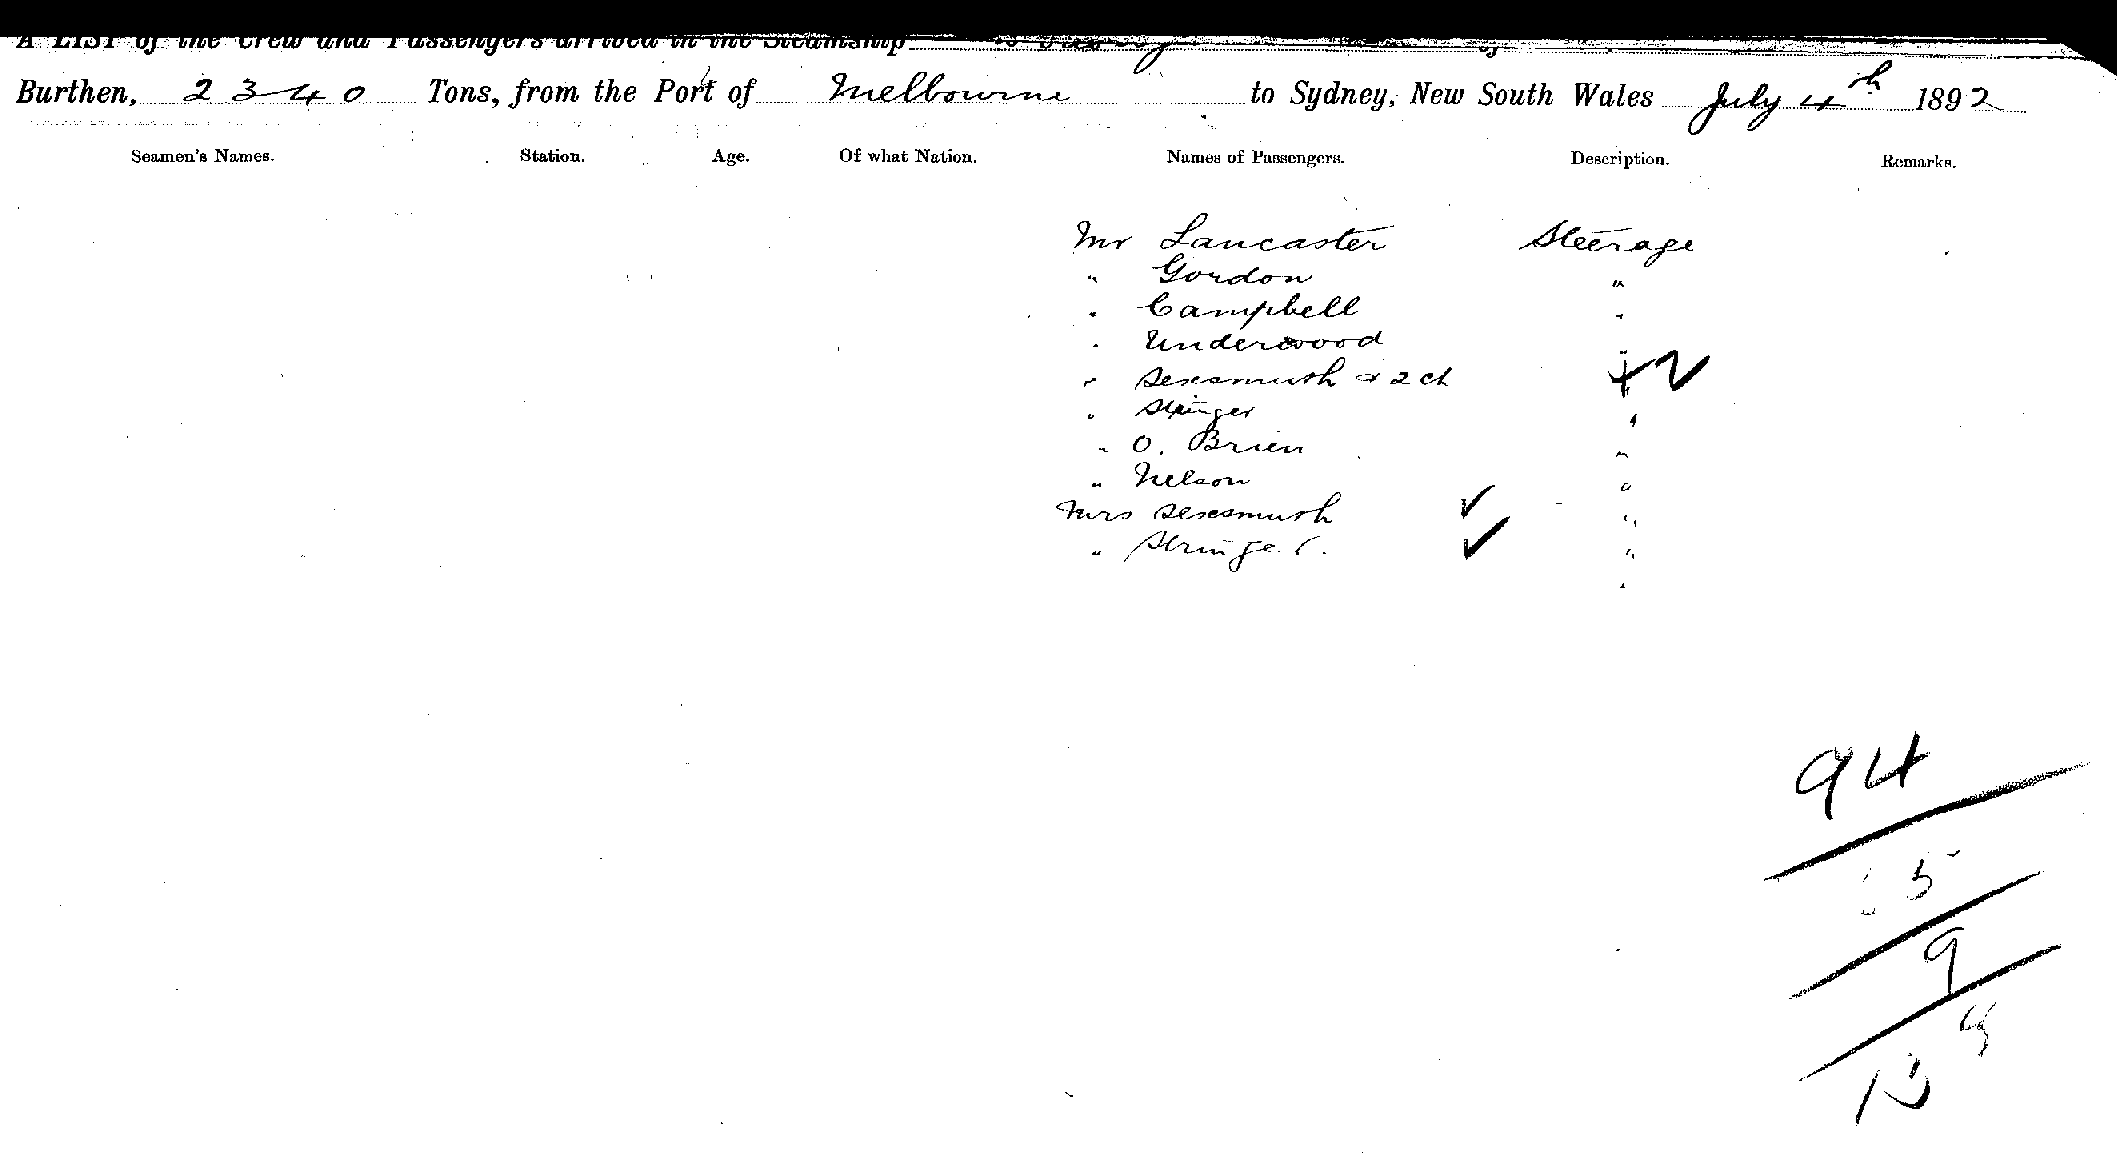 A LIST of the Crew and Passengers arrived in the Steamship
Burthen, 2340 Tons, from the Port of Melbourne to Sydney, New South Wales July 4th 1892
Seamen's Names. Station. Age. Of what Nation. Names of Passengers. Description. Remarks.
Mr Lancaster Steerage
" Gordon "
" Campbell "
" Underwood "
" Sexsmith & 2 ch + 2
" Stringer "
" O. Brien "
" Nelson "
Mrs Sexsmith "
" Stringer "
"
94
5
9